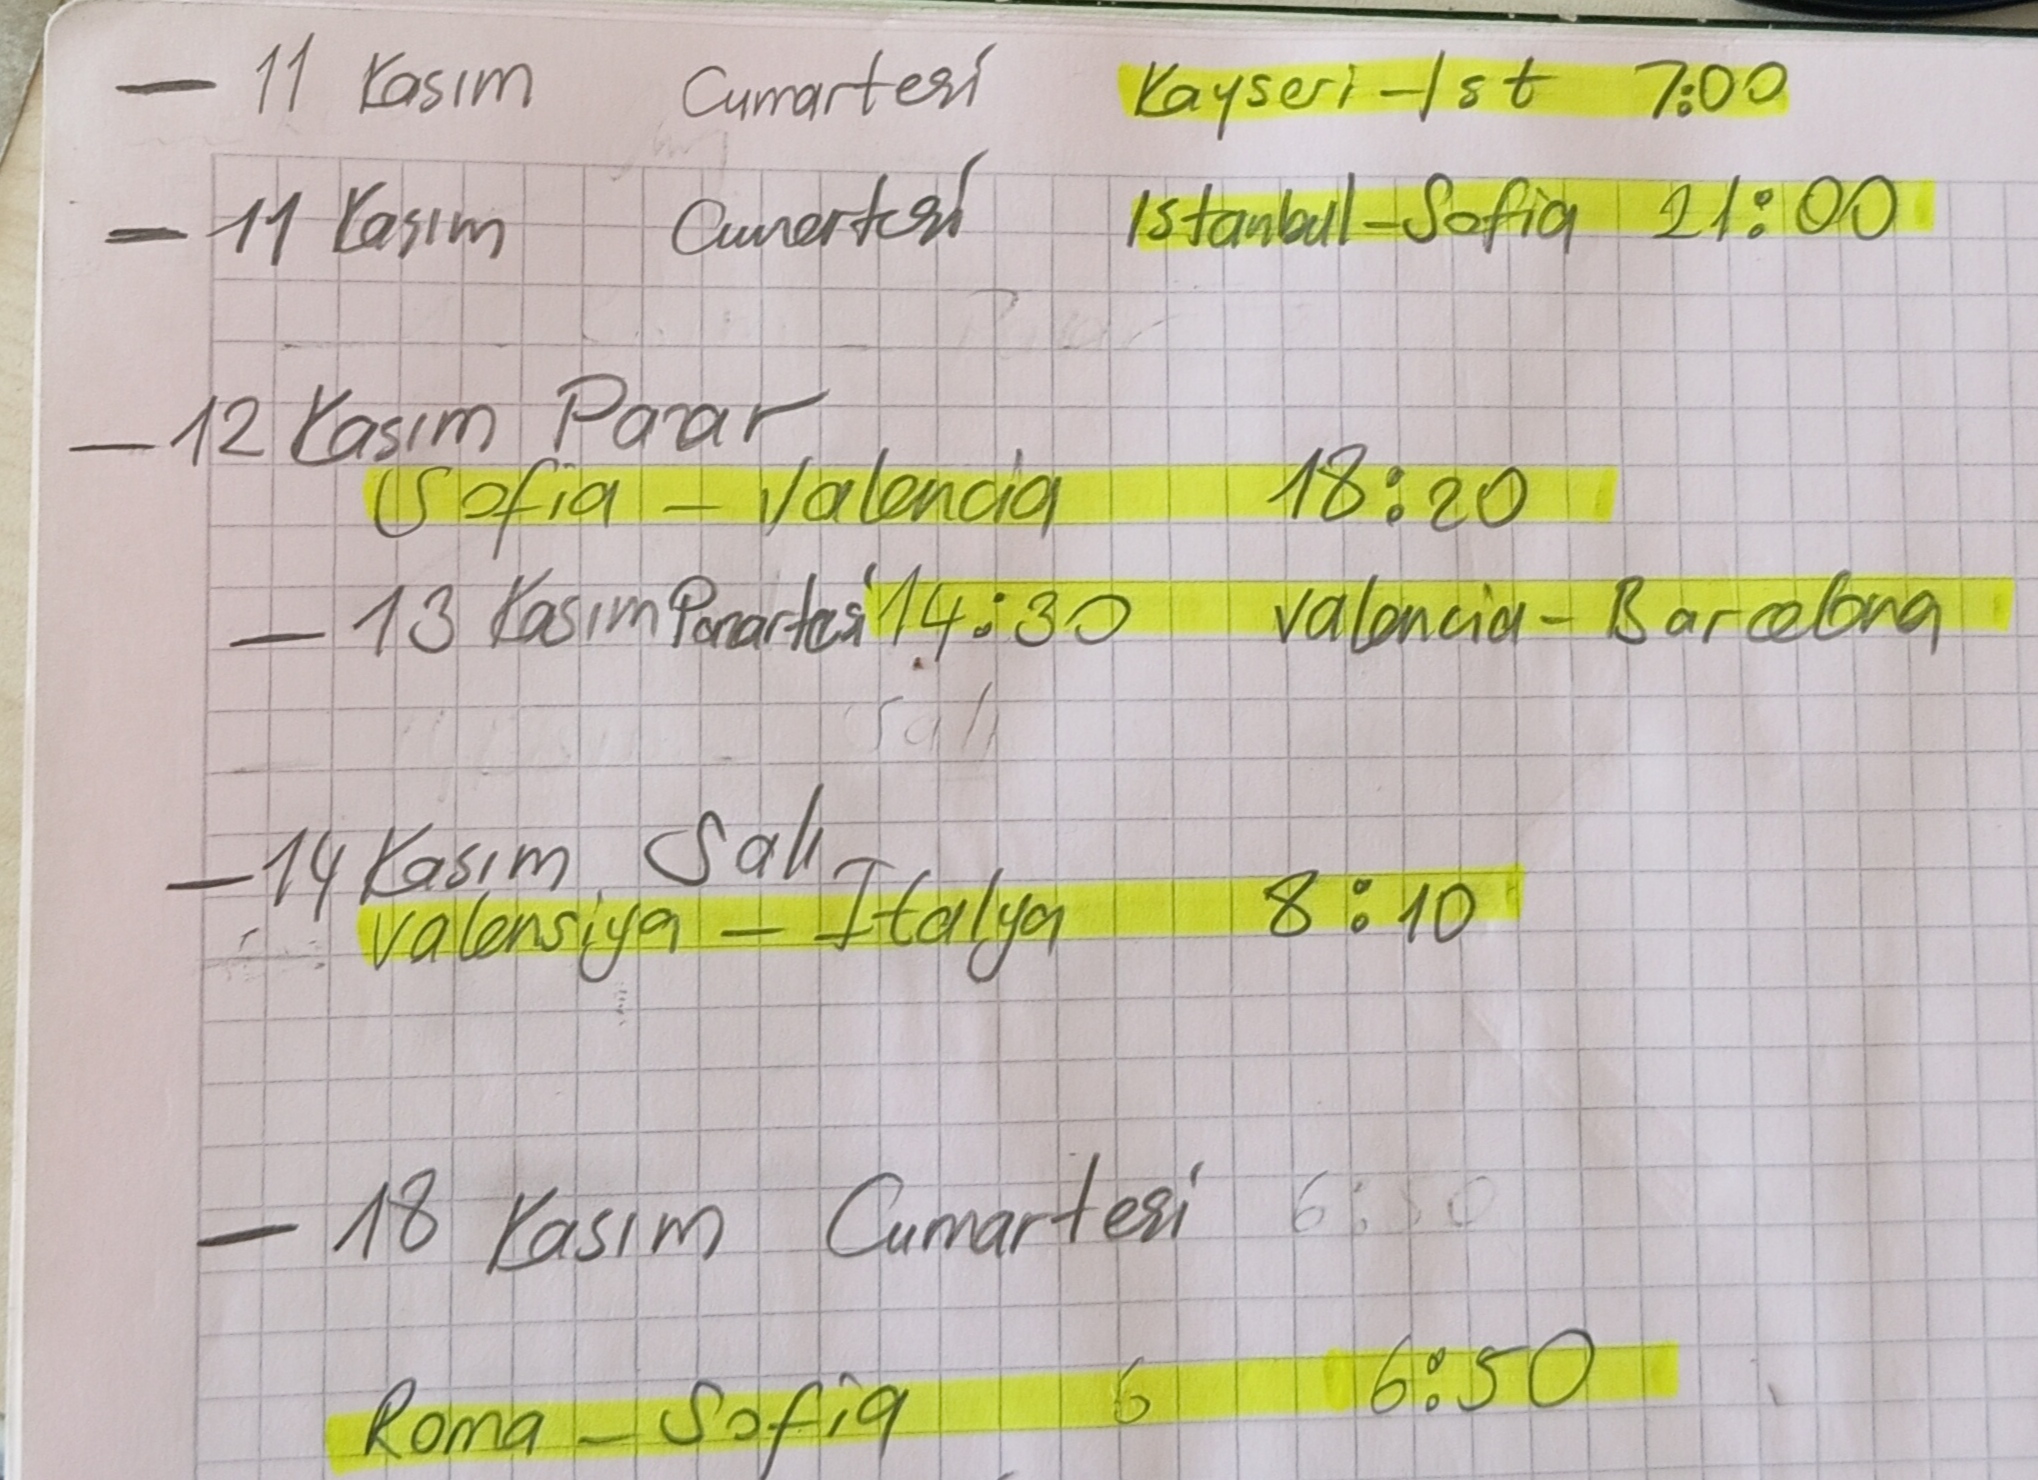 — 11 Kasım Cumartesi Kayseri-Ist 7:00
— 11 Kasım Cumartesi Istanbul-Sofia 21:00
— 12 Kasım Pazar
Sofia - Valencia 18:20
— 13 Kasım Pazartesi 14:30 Valencia - Barcelona
Salı
— 14 Kasım Salı
Valensiya - Italya 8:10
— 18 Kasım Cumartesi 6:50
Roma - Sofia 6 6:50